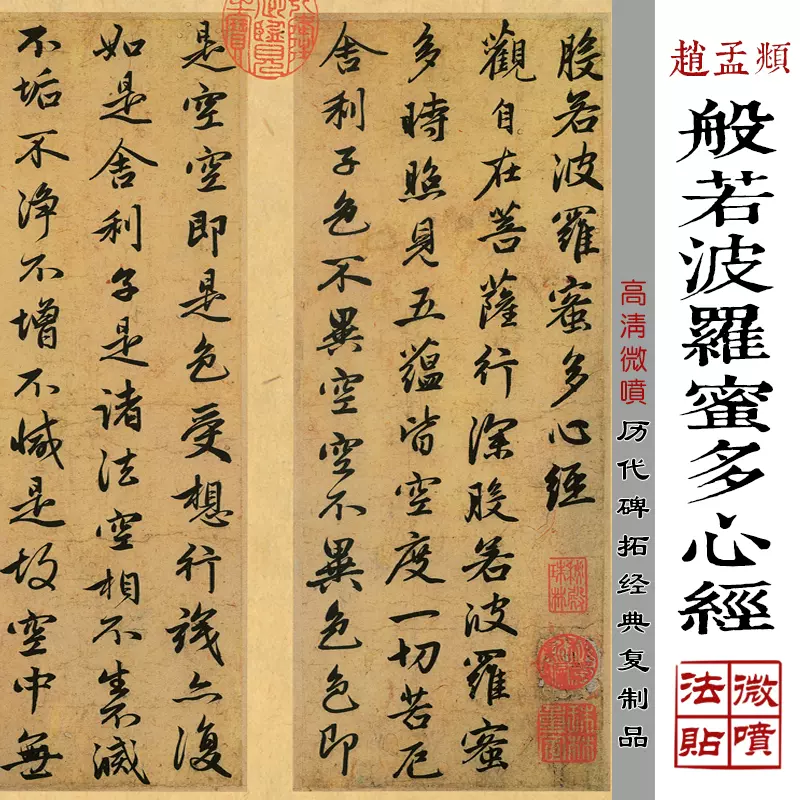 趙孟頫
般若波羅蜜多心經
微噴
法貼
高清微噴 历代碑拓经典复制品
般若波羅蜜多心經
觀自在菩薩行深般若波羅蜜
多時照見五蘊皆空度一切苦厄
舍利子色不異空空不異色色即
是空空即是色受想行識亦復
如是舍利子是諸法空相不生不滅
不垢不淨不增不減是故空中無